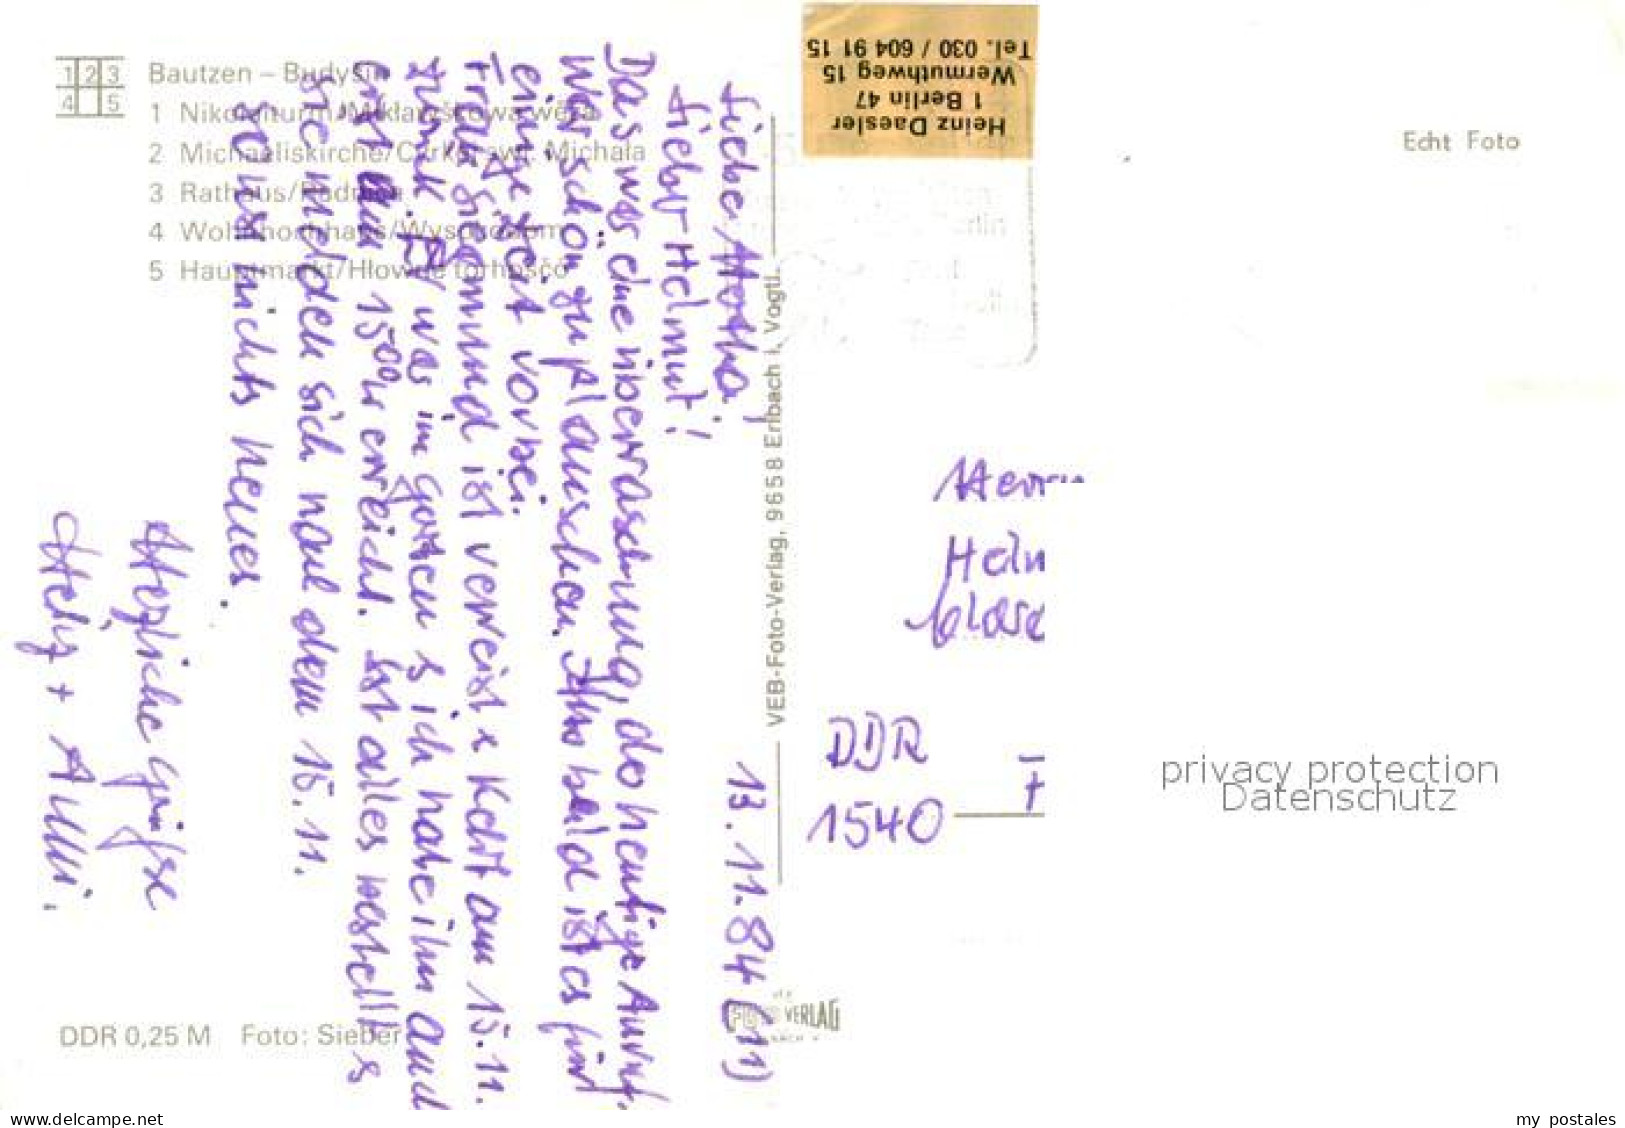 1 2 3
4 5
Bautzen – Budyšin
1 Nikolaiturm/Miklawškowa wěža
2 Michaeliskirche/Cyrkej swj. Michała
3 Rathaus/Radnica
4 Wohnhochhaus/Wysokodom
5 Hauptmarkt/Hłowne torhošćo
Heinz Daesler
1 Berlin 47
Wermuthweg 15
Tel. 030 / 604 91 15
Echt Foto
13.11.84 (11)
Liebe Hertha!
Lieber Helmut!
Das war eine überraschung, do heutige Anruf.
War schön zu plauschen. Also bald ist es für
einige Zeit vorbei.
Frau Siegmund ist verreist x Kehrt am 15.11.
zurück. Er war im Garten s ich habe ihn auch
erst um 1500 Uhr erreicht. Ist alles bestellt s
sie melden sich nach dem 15.11.
Sonst nichts neues.
Herzliche Grüsse
Heinz + Anni.
VEB-Foto-Verlag, 9658 Erlbach i. Vogtl.
Herrn
DDR
1540
VERLAG
DDR 0,25 M Foto: Sieber
privacy protection
Datenschutz
www.delcampe.net
my_postales